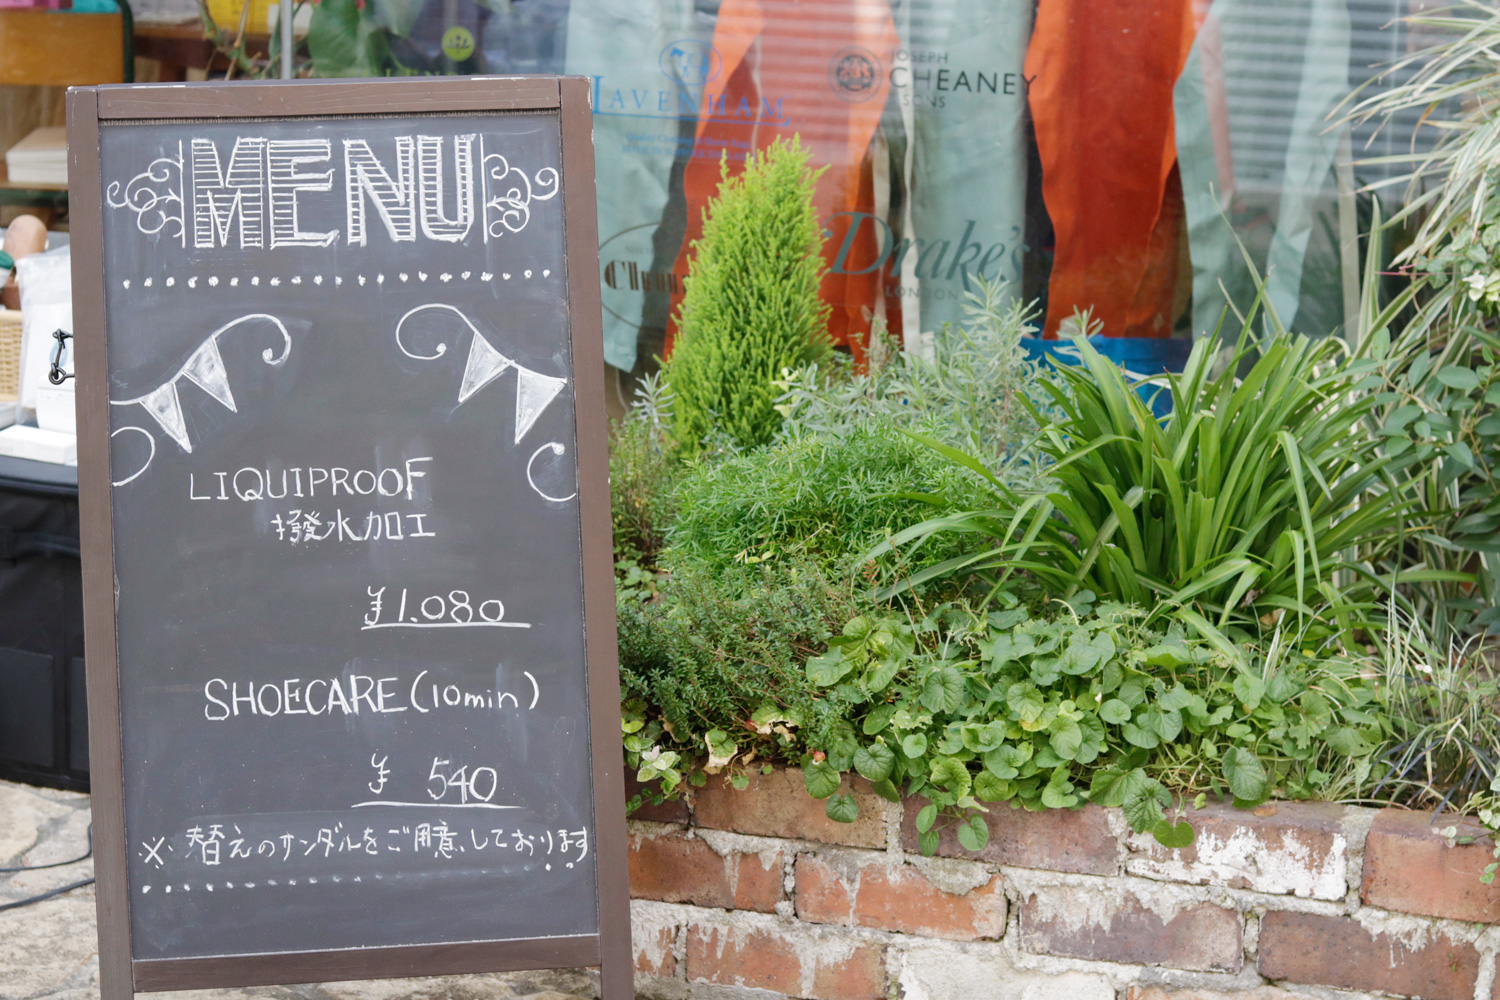 MENU
LIQUIPROOF
撥水加工
¥1.080
SHOECARE(10min)
¥ 540
※替えのサンダルをご用意しております
LAVENHAM
JOSEPH
CHEANEY
& SONS
Drake's
LONDON